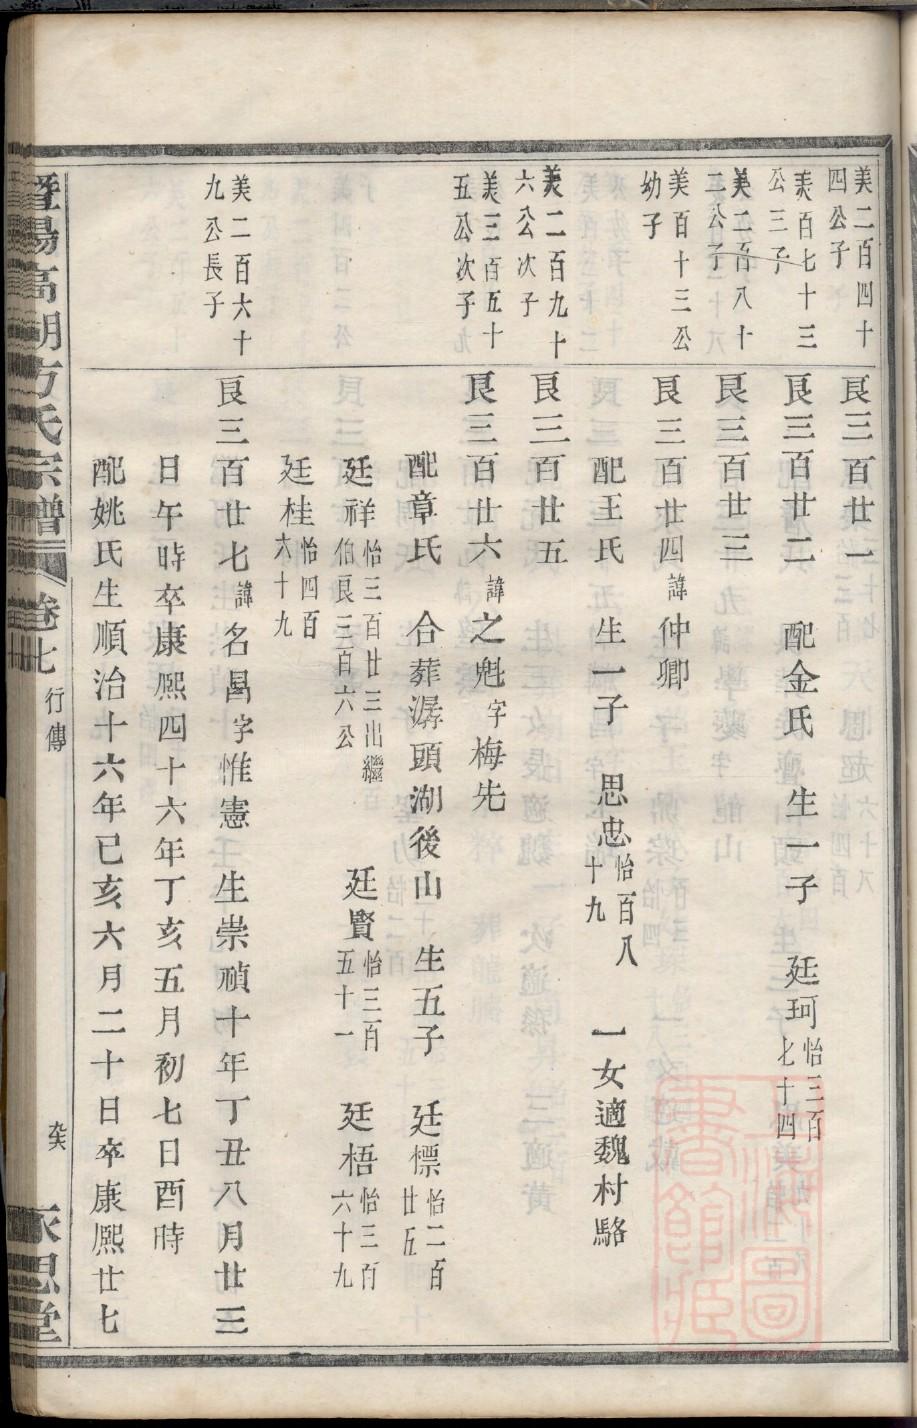 美二百四十
四公子
艮三百廿一
美百七十三
公三子
艮三百廿二 配金氏 生一子 廷珂怡三百七十四
美二百八十
二公子
艮三百廿三
美百十三公
幼子
艮三百廿四諱仲卿
配王氏 生一子 思忠怡百八十九 一女適魏村駱
美二百九十
六公次子
艮三百廿五
美三百五十
五公次子
艮三百廿六諱之魁字梅先
配章氏 合葬潺頭湖後山 生五子 廷標怡二百廿五
廷祥怡三百廿三出繼伯艮三百六公 廷賢怡三百五十一 廷梧怡三百六十九
廷桂怡四百六十九
美二百六十
九公長子
艮三百廿七諱名昌字惟憲 生崇禎十年丁丑八月廿三
日午時卒康熙四十六年丁亥五月初七日酉時
配姚氏生順治十六年已亥六月二十日卒康熙廿七
暨陽高湖方氏宗譜 卷七 行傳 永思堂